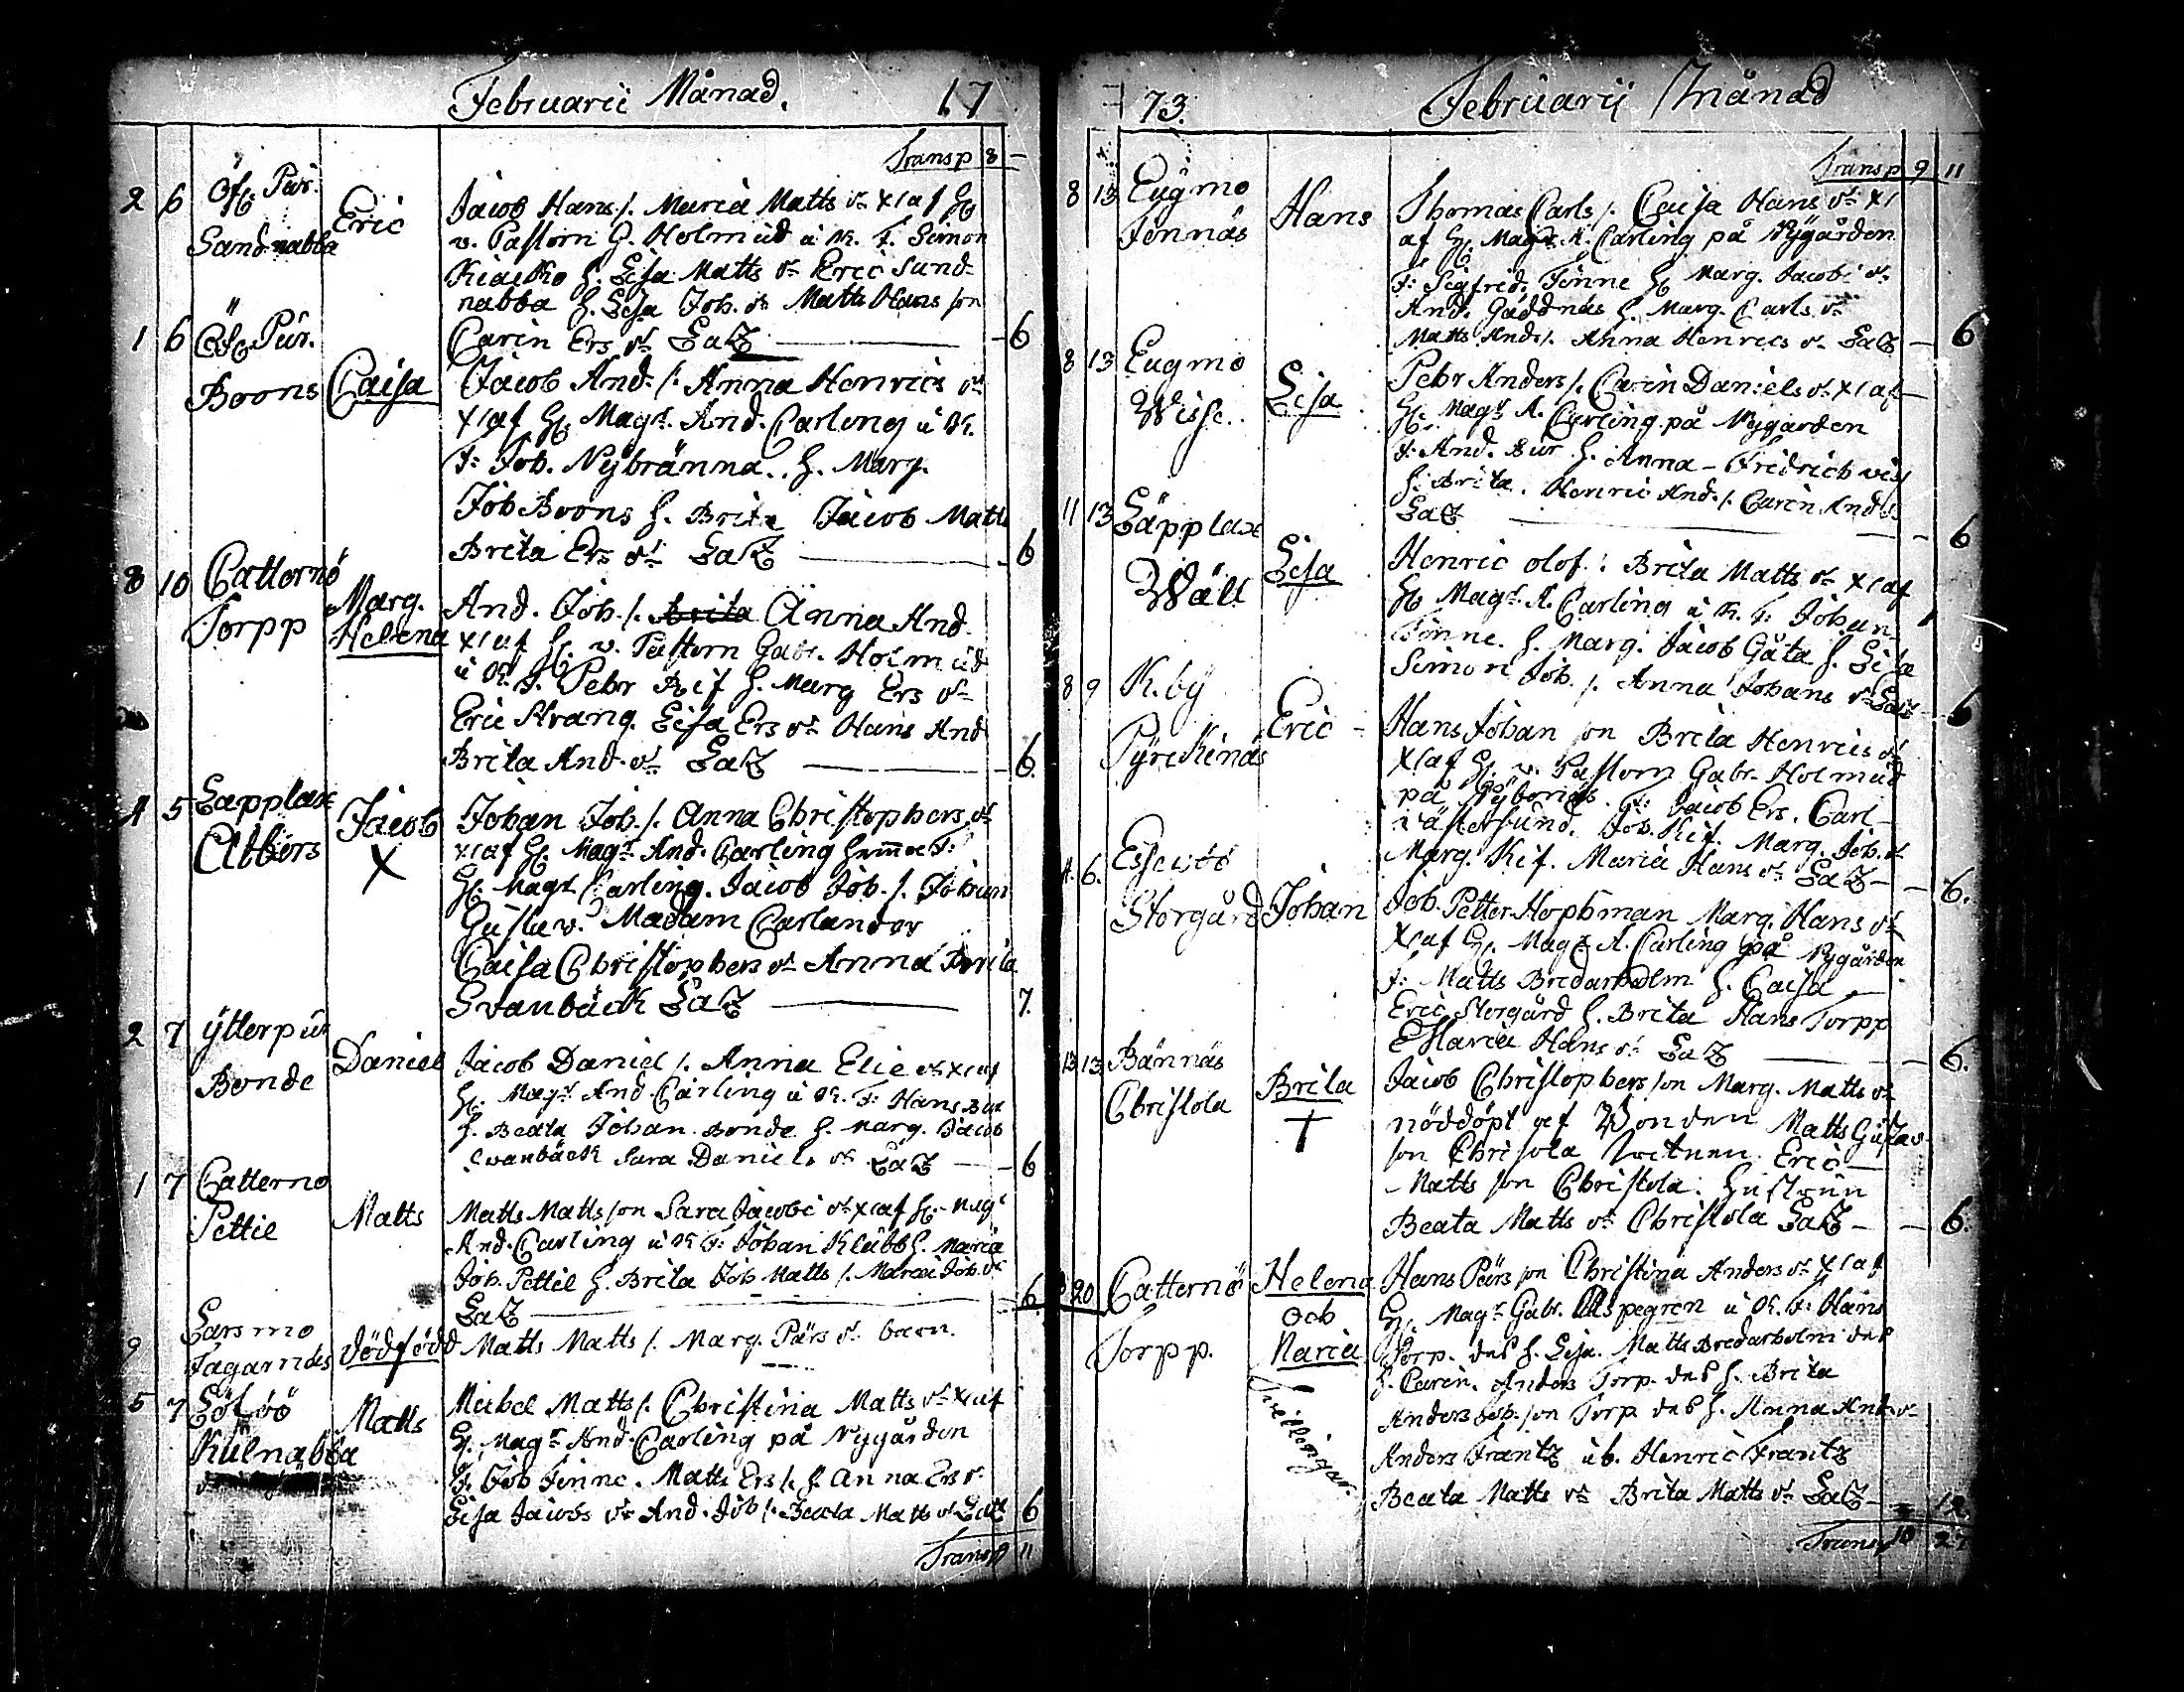 Februarii Månad. 17
Transp 8 –
2 6 Öf. Pur. Eric Jacob Hans /. Maria Matts dr X1 af H
Sandnabba v. Pastorn G. Holmud i K. F. Simon
Kiacko h. Lisa Matts dr Eric Sund-
nabba h. Lisa Joh. dr Matts Hans son
Carin Ers dr SaZ — 6
1 6 Öf. Pur.
Boons Caisa Jacob And. /. Anna Henrics dr
X1 af H. Magr. And. Carling i K.
F: Joh. Nybränna. h. Marg.
Joh Boons h. Brita Jacob Matts
Brita Ers dr SaZ — 6
8 10 Catternö Marg.
Torpp Helena And. Joh. /. Brita Anna And.
X1 af H. v. Pastorn Gabr. Holmud
i K. F. Pehr Rif h. Marg Ers dr
Eric Strang. Lisa Ers dr Hans And
Brita And. dr SaZ — 6.
4 5 Lapplax Jacob Johan Joh. /. Anna Christophers dr
Abbors X X1 af H. Magr. And. Carling hemma F:
H. Magr. Carling. Jacob Joh. /. Johan
Gustav. Madam Carlander
Caisa Christophers dr Anna Brita
Svanbäck SaZ — 7.
2 7 Ytterpur
Bonde Daniel Jacob Daniel /. Anna Elie dr X1 af
H. Magr. And. Carling i K. F: Hans Bur
h. Beata Johan Bonde h. Marg. Jacob
Svanbäck Sara Daniels dr SaZ — 6
1 7 Catterno
Pettil Matts Matts Matts son Sara Jacobs dr X1 af H. Magr
And. Carling i K F: Johan Klubb h. Maria
Joh. Pettil h. Brita Joh Matts /. Maria Joh. dr
SaZ — 6.
Larsmo
9 Fagarnäs dödfödd Matts Matts /. Marg. Pärs dr barn.
5 7 Löfö Matts Michel Matts /. Christina Matts dr X1 af
Kulnabba H. Magr And. Carling på Nygården
F. Joh Finne. Matts Ers /. h. Anna Ers dr
Lisa Jacobs dr And. Joh /. Beata Matts dr SaZ 6
Transp 9 11
73. Februarij Månad
Transp 9 11
8 13 Eugmo Hans Thomas Carls /. Caisa Hans dr X1
Fönnäs af H. Magr. A. Carling på Nygården
F: Sigfrid Finne H Marg. Jacobs dr
And. Gäddnäs h. Marg. Carls dr
Matts And. /. Anna Henrics dr SaZ — 6
8 13 Eugmo Lisa Pehr Anders /. Carin Daniels dr X1 af
Wisse. H. Magr A. Carling på Nygården
F: And. Bur h. Anna – Fridrich Wis
h. Brita. Henric And. /. Carin And dr
SaZ — 6
11 13 Läpplax
Wäll Lisa Henric Olof : Brita Matts dr X1 af
H Magr. A. Carling i K. F: Johan
Finne. h. Marg. Jacob Gåta h. Lisa
Simon Joh. /. Anna Johans dr SaZ – 6
8 9 K. by Eric – Hans Johan son Brita Henrics dr
Pyrckinäs X1 af H. v. Pastorn Gabr. Holmud
på Nyborgs. F: Jacob Ers. Carl-
västersund. Joh. Kif. Marg. Joh. dr
Marg. Kif. Maria Hans dr SaZ – 6.
4. 6. Essewöö
Storgård Johan Joh. Petter Hophman Marg. Hans dr
X1 af H. Magr A. Carling på Nygården
F: Matts Bredarholm h. Caisa
Eric Storgård h. Brita Hans Torpp
Maria Hans dr SaZ — 6.
13 13 Bännäs Brita Jacob Christophers son Marg. Matts dr
Christola † nöddöpt af Bonden Matts Gustav
son Christola Witnen Eric
Matts son Christola. Hustrun
Beata Matts dr Christola SaZ – 6.
20 Catternö Helena Hans Pärs son Christina Anders dr X1 af
och H. Magr Gabr. Aspegren i K. F: Hans
Torpp. Maria Torp. des h. Lisa. Matts Bredarholm des
h. Carin. Anders Torp. des h. Brita
Tvillingar. Anders Joh. son Torp des h. Anna And. dr
Anders Frantz ib. Henric Frantz
Beata Matts dr Brita Matts dr SaZ – 12
Transp 10 27